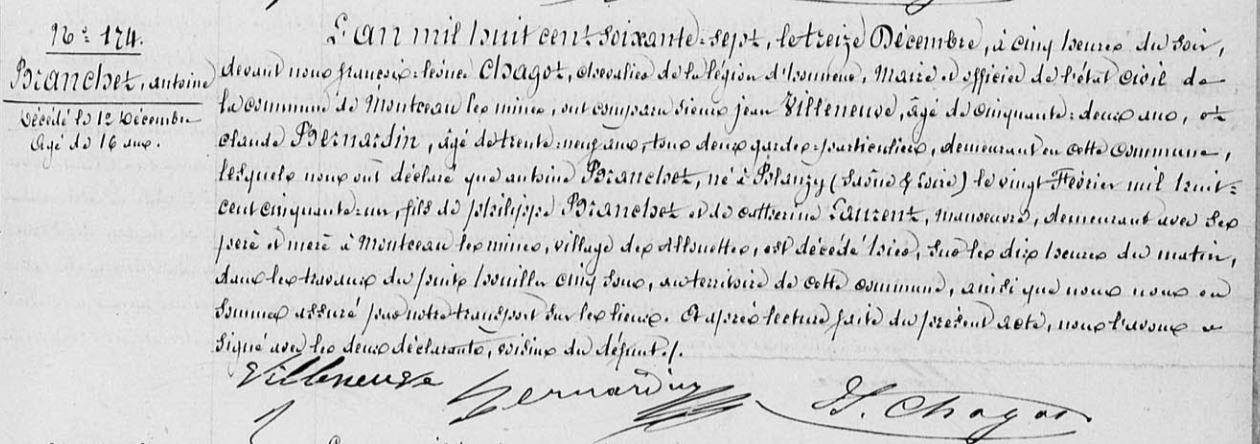 N° 174.
Branchet, antoine
Décédé le 12 Décembre
Agé de 16 ans.
L'an mil huit cent soixante-sept, le treize Décembre, à cinq heures du soir,
devant nous françois-léonce Chagot, chevalier de la légion d'honneur, Maire et officier de l'état civil de
la commune de Montceau les mines, ont comparu sieurs jean Villeneuve, âgé de cinquante-deux ans, et
claude Bernardin, âgé de trente-neuf ans, tous deux gardes-particuliers, demeurant en cette commune,
lesquels nous ont déclaré que antoine Branchet, né à Blanzy (Saône & Loire) le vingt Février mil huit-
cent cinquante-un, fils de philippe Branchet et de catherine Laurent, manoeuvre, demeurant avec ses
père et mère à Montceau les mines, village des Allouettes, est décédé hier, sur les dix heures du matin,
dans les travaux du puits houiller cinq sous, au territoire de cette commune, ainsi que nous nous en
sommes assuré par notre transport sur les lieux. Et après lecture faite du présent acte, nous l'avons
signé avec les deux déclarants, voisins du défunt./.
Villeneuve Bernardin L. Chagot